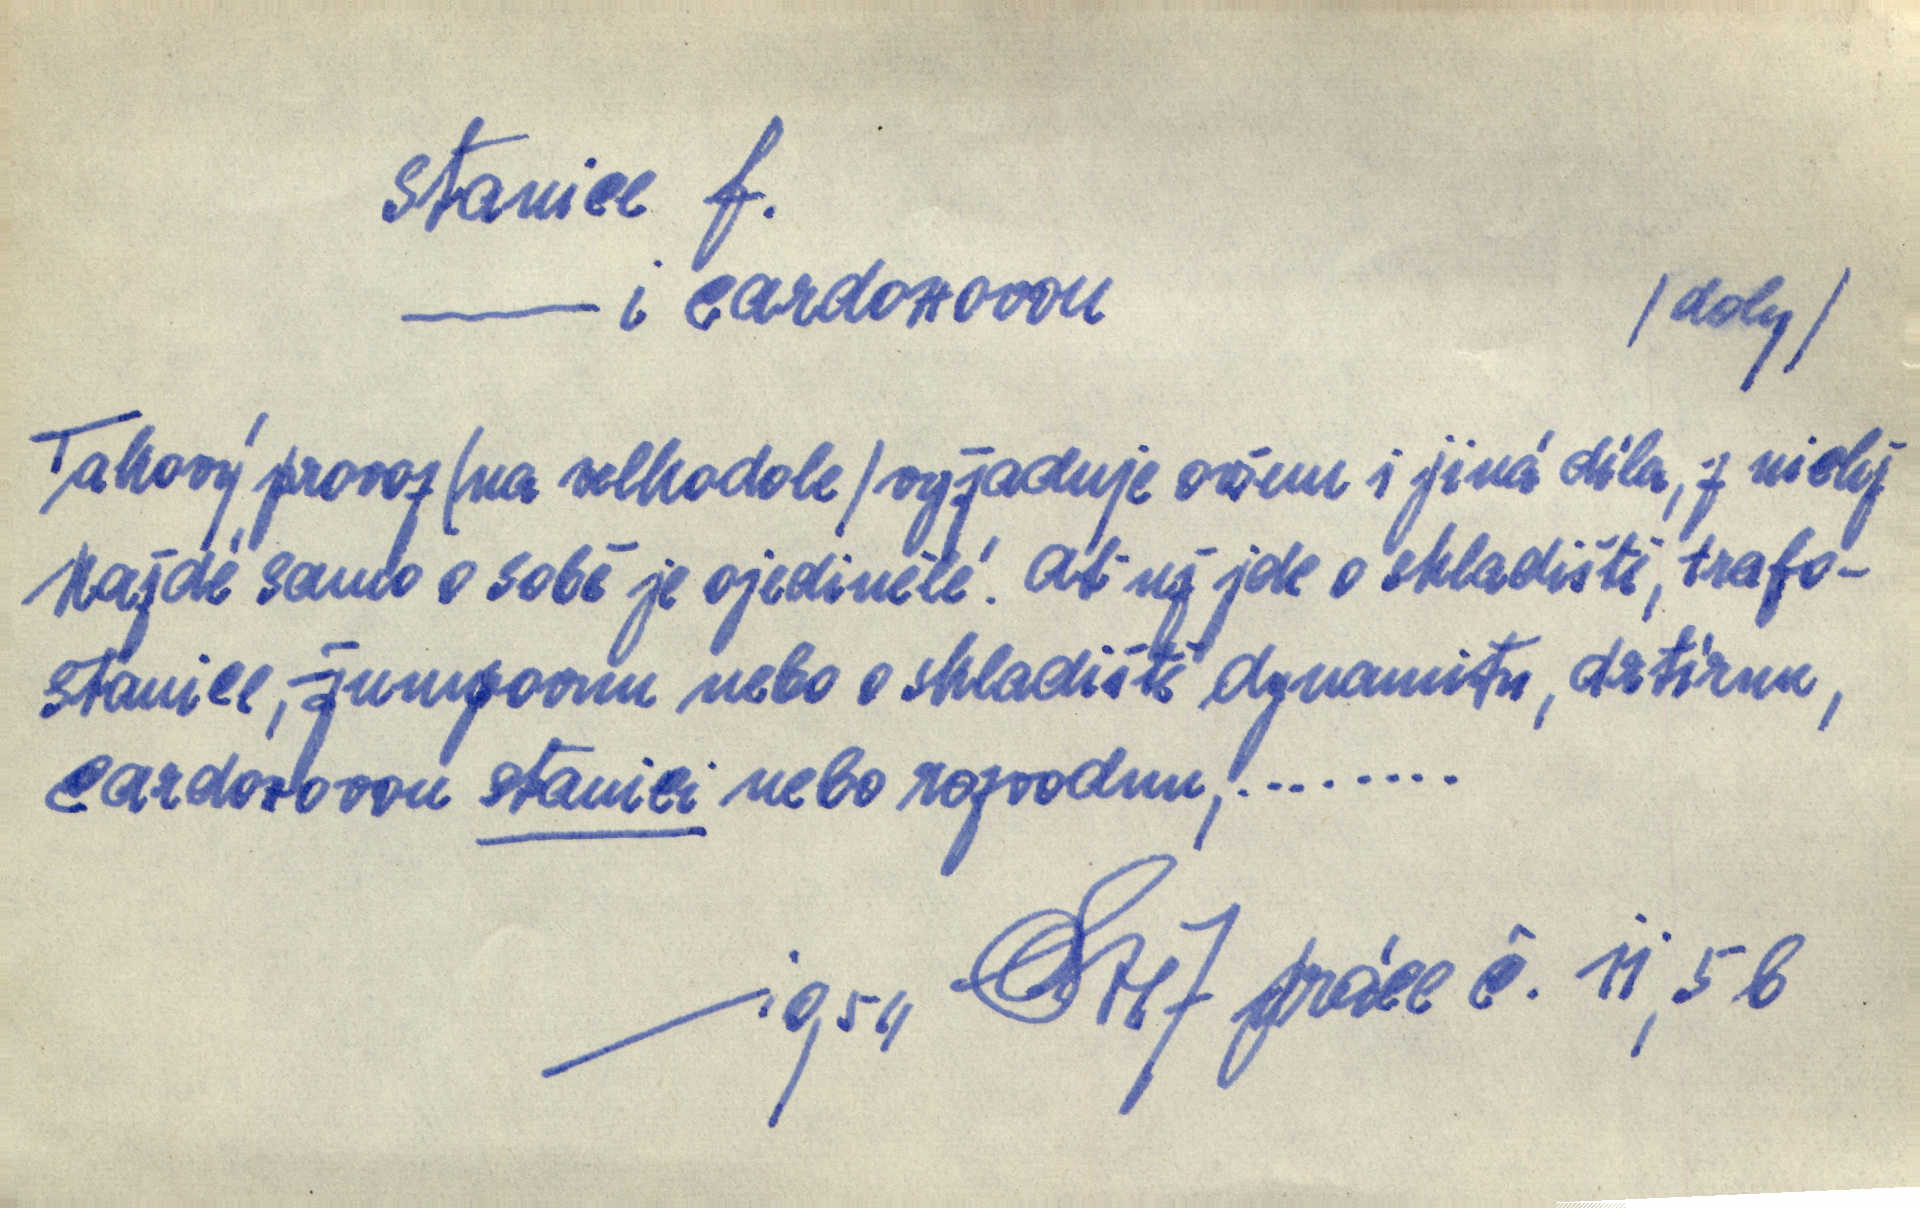 stanice f.
— i cardoxovou /doly/
Takový provoz /na velkodole/ vyžaduje ovšem i jiná díla, z nichž
každé samo o sobě je ojedinělé. Ať už jde o skladiště, trafo-
stanice, žumpovnu nebo o skladiště dynamitu, drtírnu,
cardoxovou stanici nebo rozvodnu, ........
1954 práce č. 11, 5 b